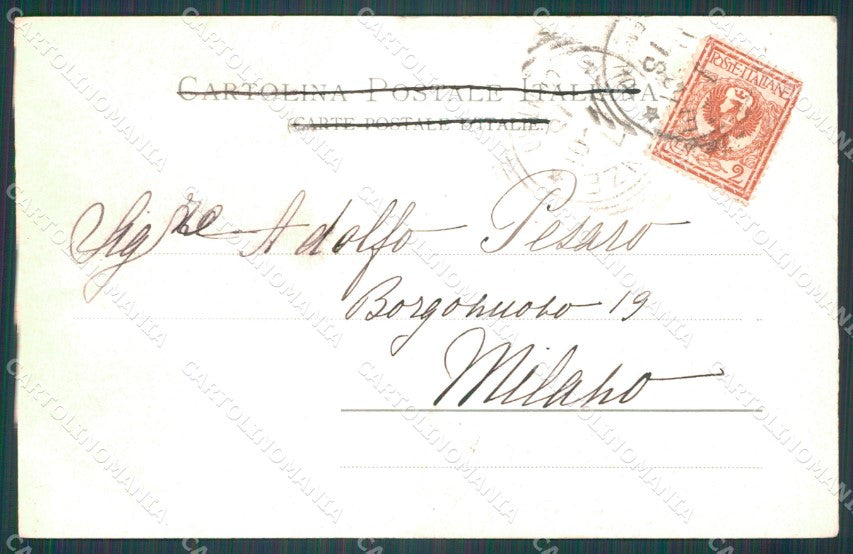 CARTOLINA POSTALE ITALIANA
CARTE POSTALE D'ITALIE.
POSTE ITALIANE
2
Sigre Adolfo Pesaro
Borgonuovo 19
Milano
CARTOLINOMANIA